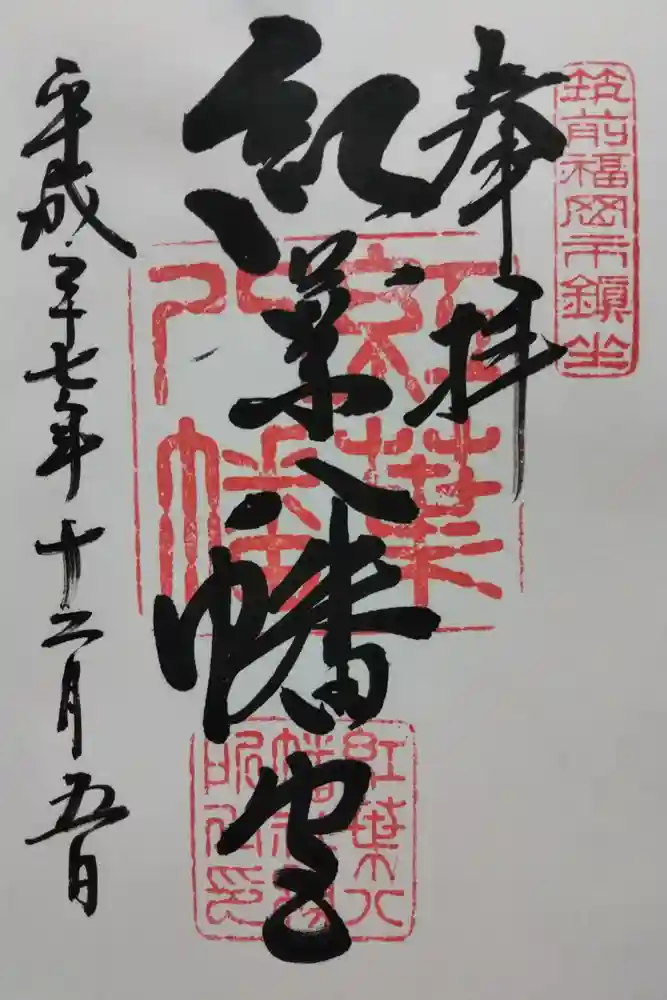 筑前福岡市鎮坐
奉拝
紅葉八幡宮
紅葉
八幡
紅葉八
幡宮
平成二十七年十二月五日